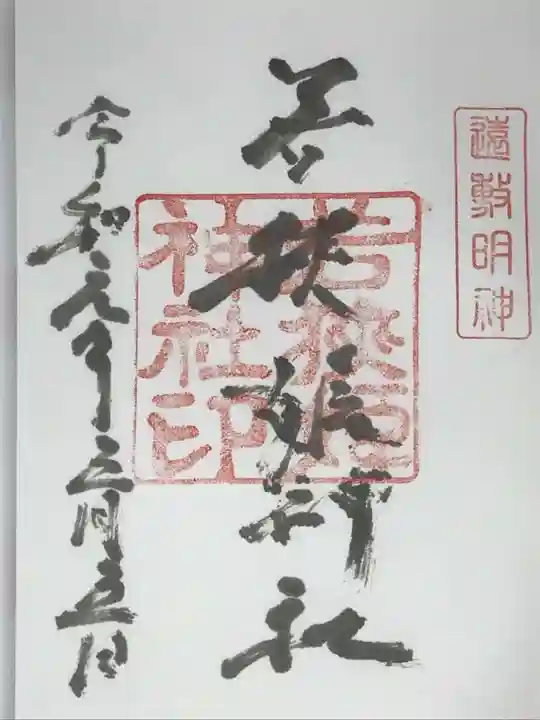 遠敷明神
若狭姫神社
若狭姫
神社印
令和元年五月五日